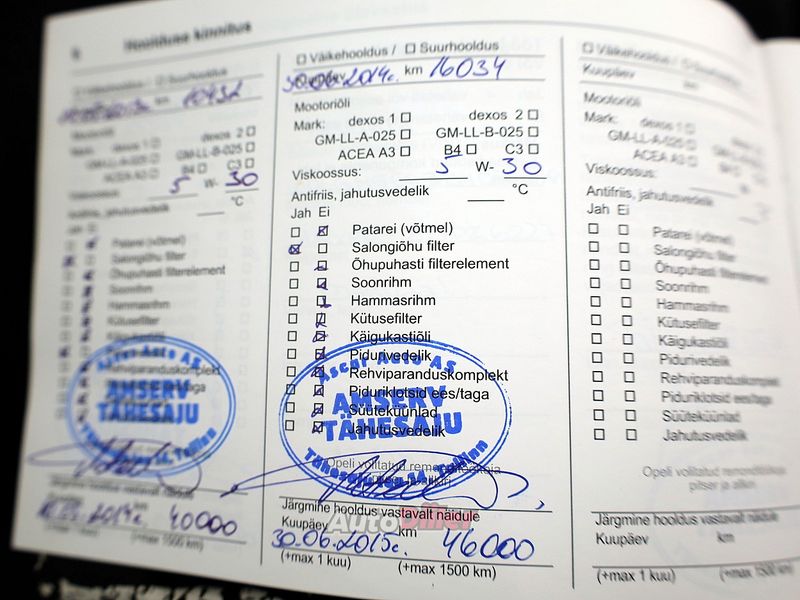 Hoolduse kinnitus
Väikehooldus / Suurhooldus
km 10432
Mootoriõli
dexos 1 dexos 2
GM-LL-A-025 GM-LL-B-025
ACEA A3 B4 C3
Viskoossus: 5 W- 30
Antifriis, jahutusvedelik °C
Patarei (võtmel)
Salongiõhu filter
Õhupuhasti filterelement
Soonrihm
Hammasrihm
Kütusefilter
Käigukastiõli
Pidurivedelik
Rehviparanduskomplekt
Ascar Auto AS
AMSERV
TÄHESAJU
Tallinn
Järgmine hooldus vastavalt näidule
2014c. 40000
(+max 1500 km)
Väikehooldus / Suurhooldus
Kuupäev 30.06.2014c. km 16034
Mootoriõli
Mark: dexos 1 dexos 2
GM-LL-A-025 GM-LL-B-025
ACEA A3 B4 C3
Viskoossus: 5 W- 30
Antifriis, jahutusvedelik °C
Jah Ei
Patarei (võtmel)
Salongiõhu filter
Õhupuhasti filterelement
Soonrihm
Hammasrihm
Kütusefilter
Käigukastiõli
Pidurivedelik
Rehviparanduskomplekt
Piduriklotsid ees/taga
Süüteküünlad
Jahutusvedelik
Ascar Auto AS
AMSERV
TÄHESAJU
Tähesaju tee 14, Tallinn
Opeli volitatud remonditöökoja
Järgmine hooldus vastavalt näidule
AutoDiiler
Kuupäev km
30.06.2015c. 46000
(+max 1 kuu) (+max 1500 km)
Väikehooldus / Suurhooldus
Kuupäev km
Mootoriõli
Mark: dexos 1
GM-LL-A-025
ACEA A3
Viskoossus:
Antifriis, jahutusvedelik
Jah Ei
Patarei (võtmel)
Salongiõhu filter
Õhupuhasti filterelement
Soonrihm
Hammasrihm
Kütusefilter
Käigukastiõli
Pidurivedelik
Rehviparanduskomplekt
Piduriklotsid ees/taga
Süüteküünlad
Jahutusvedelik
Opeli volitatud
pitser ja allkiri
Järgmine hooldus vastavalt näidule
Kuupäev km
(+max 1 kuu) (+max 1500 km)